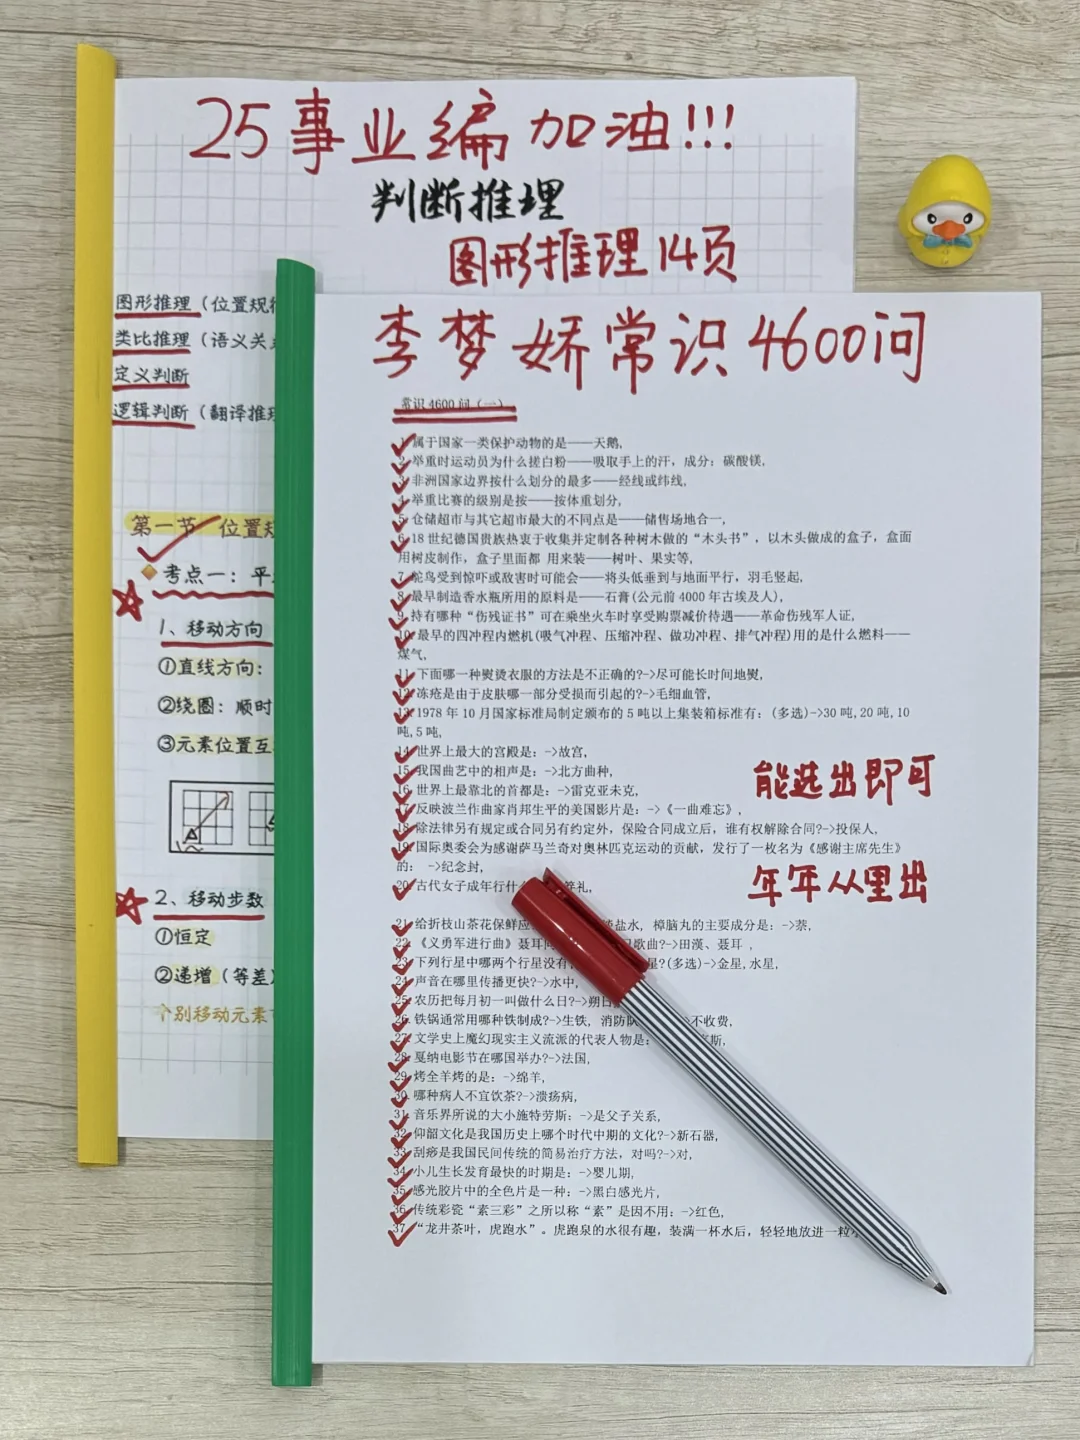 25事业编加油!!!
判断推理
图形推理14页
图形推理（位置规律
类比推理（语义关系
定义判断
逻辑判断（翻译推理
第一节 位置规
考点一：平
1、移动方向
①直线方向：
②绕圈：顺时
③元素位置互
2、移动步数
①恒定
②递增（等差）
个别移动元素
李梦娇常识4600问
常识4600问（一）
1.属于国家一类保护动物的是——天鹅,
2.举重时运动员为什么搓白粉——吸取手上的汗，成分：碳酸镁,
3.非洲国家边界按什么划分的最多——经线或纬线,
4.举重比赛的级别是按——按体重划分,
5.仓储超市与其它超市最大的不同点是——储售场地合一,
6.18世纪德国贵族热衷于收集并定制各种树木做的“木头书”，以木头做成的盒子，盒面
用树皮制作，盒子里面都 用来装——树叶、果实等,
7.鸵鸟受到惊吓或敌害时可能会——将头低垂到与地面平行，羽毛竖起,
8.最早制造香水瓶所用的原料是——石膏(公元前4000年古埃及人),
9.持有哪种“伤残证书”可在乘坐火车时享受购票减价待遇——革命伤残军人证,
10.最早的四冲程内燃机(吸气冲程、压缩冲程、做功冲程、排气冲程)用的是什么燃料——
煤气,
11.下面哪一种熨烫衣服的方法是不正确的?->尽可能长时间地熨,
12.冻疮是由于皮肤哪一部分受损而引起的?->毛细血管,
13.1978年10月国家标准局制定颁布的5吨以上集装箱标准有：(多选)->30吨,20吨,10
吨,5吨,
14.世界上最大的宫殿是：->故宫,
15.我国曲艺中的相声是：->北方曲种,
16.世界上最靠北的首都是：->雷克亚未克,
17.反映波兰作曲家肖邦生平的美国影片是：->《一曲难忘》,
18.除法律另有规定或合同另有约定外，保险合同成立后，谁有权解除合同?->投保人,
19.国际奥委会为感谢萨马兰奇对奥林匹克运动的贡献，发行了一枚名为《感谢主席先生》
的： ->纪念封,
20.古代女子成年行什 笄礼,
21.给折枝山茶花保鲜应 盐水，樟脑丸的主要成分是：->萘,
22.《义勇军进行曲》聂耳 歌曲?->田漠、聂耳 ,
23.下列行星中哪两个行星没有 星?(多选)->金星,水星,
24.声音在哪里传播更快?->水中,
25.农历把每月初一叫做什么日?->朔日
26.铁锅通常用哪种铁制成?->生铁，消防队 >不收费,
27.文学史上魔幻现实主义流派的代表人物是： 斯,
28.戛纳电影节在哪国举办?->法国,
29.烤全羊烤的是：->绵羊,
30.哪种病人不宜饮茶?->溃疡病,
31.音乐界所说的大小施特劳斯：->是父子关系,
32.仰韶文化是我国历史上哪个时代中期的文化?->新石器,
33.刮痧是我国民间传统的简易治疗方法，对吗?->对,
34.小儿生长发育最快的时期是：->婴儿期,
35.感光胶片中的全色片是一种：->黑白感光片,
36.传统彩瓷“素三彩”之所以称“素”是因不用：->红色,
37.“龙井茶叶，虎跑水”。虎跑泉的水很有趣，装满一杯水后，轻轻地放进一粒
能选出即可
年年从里出